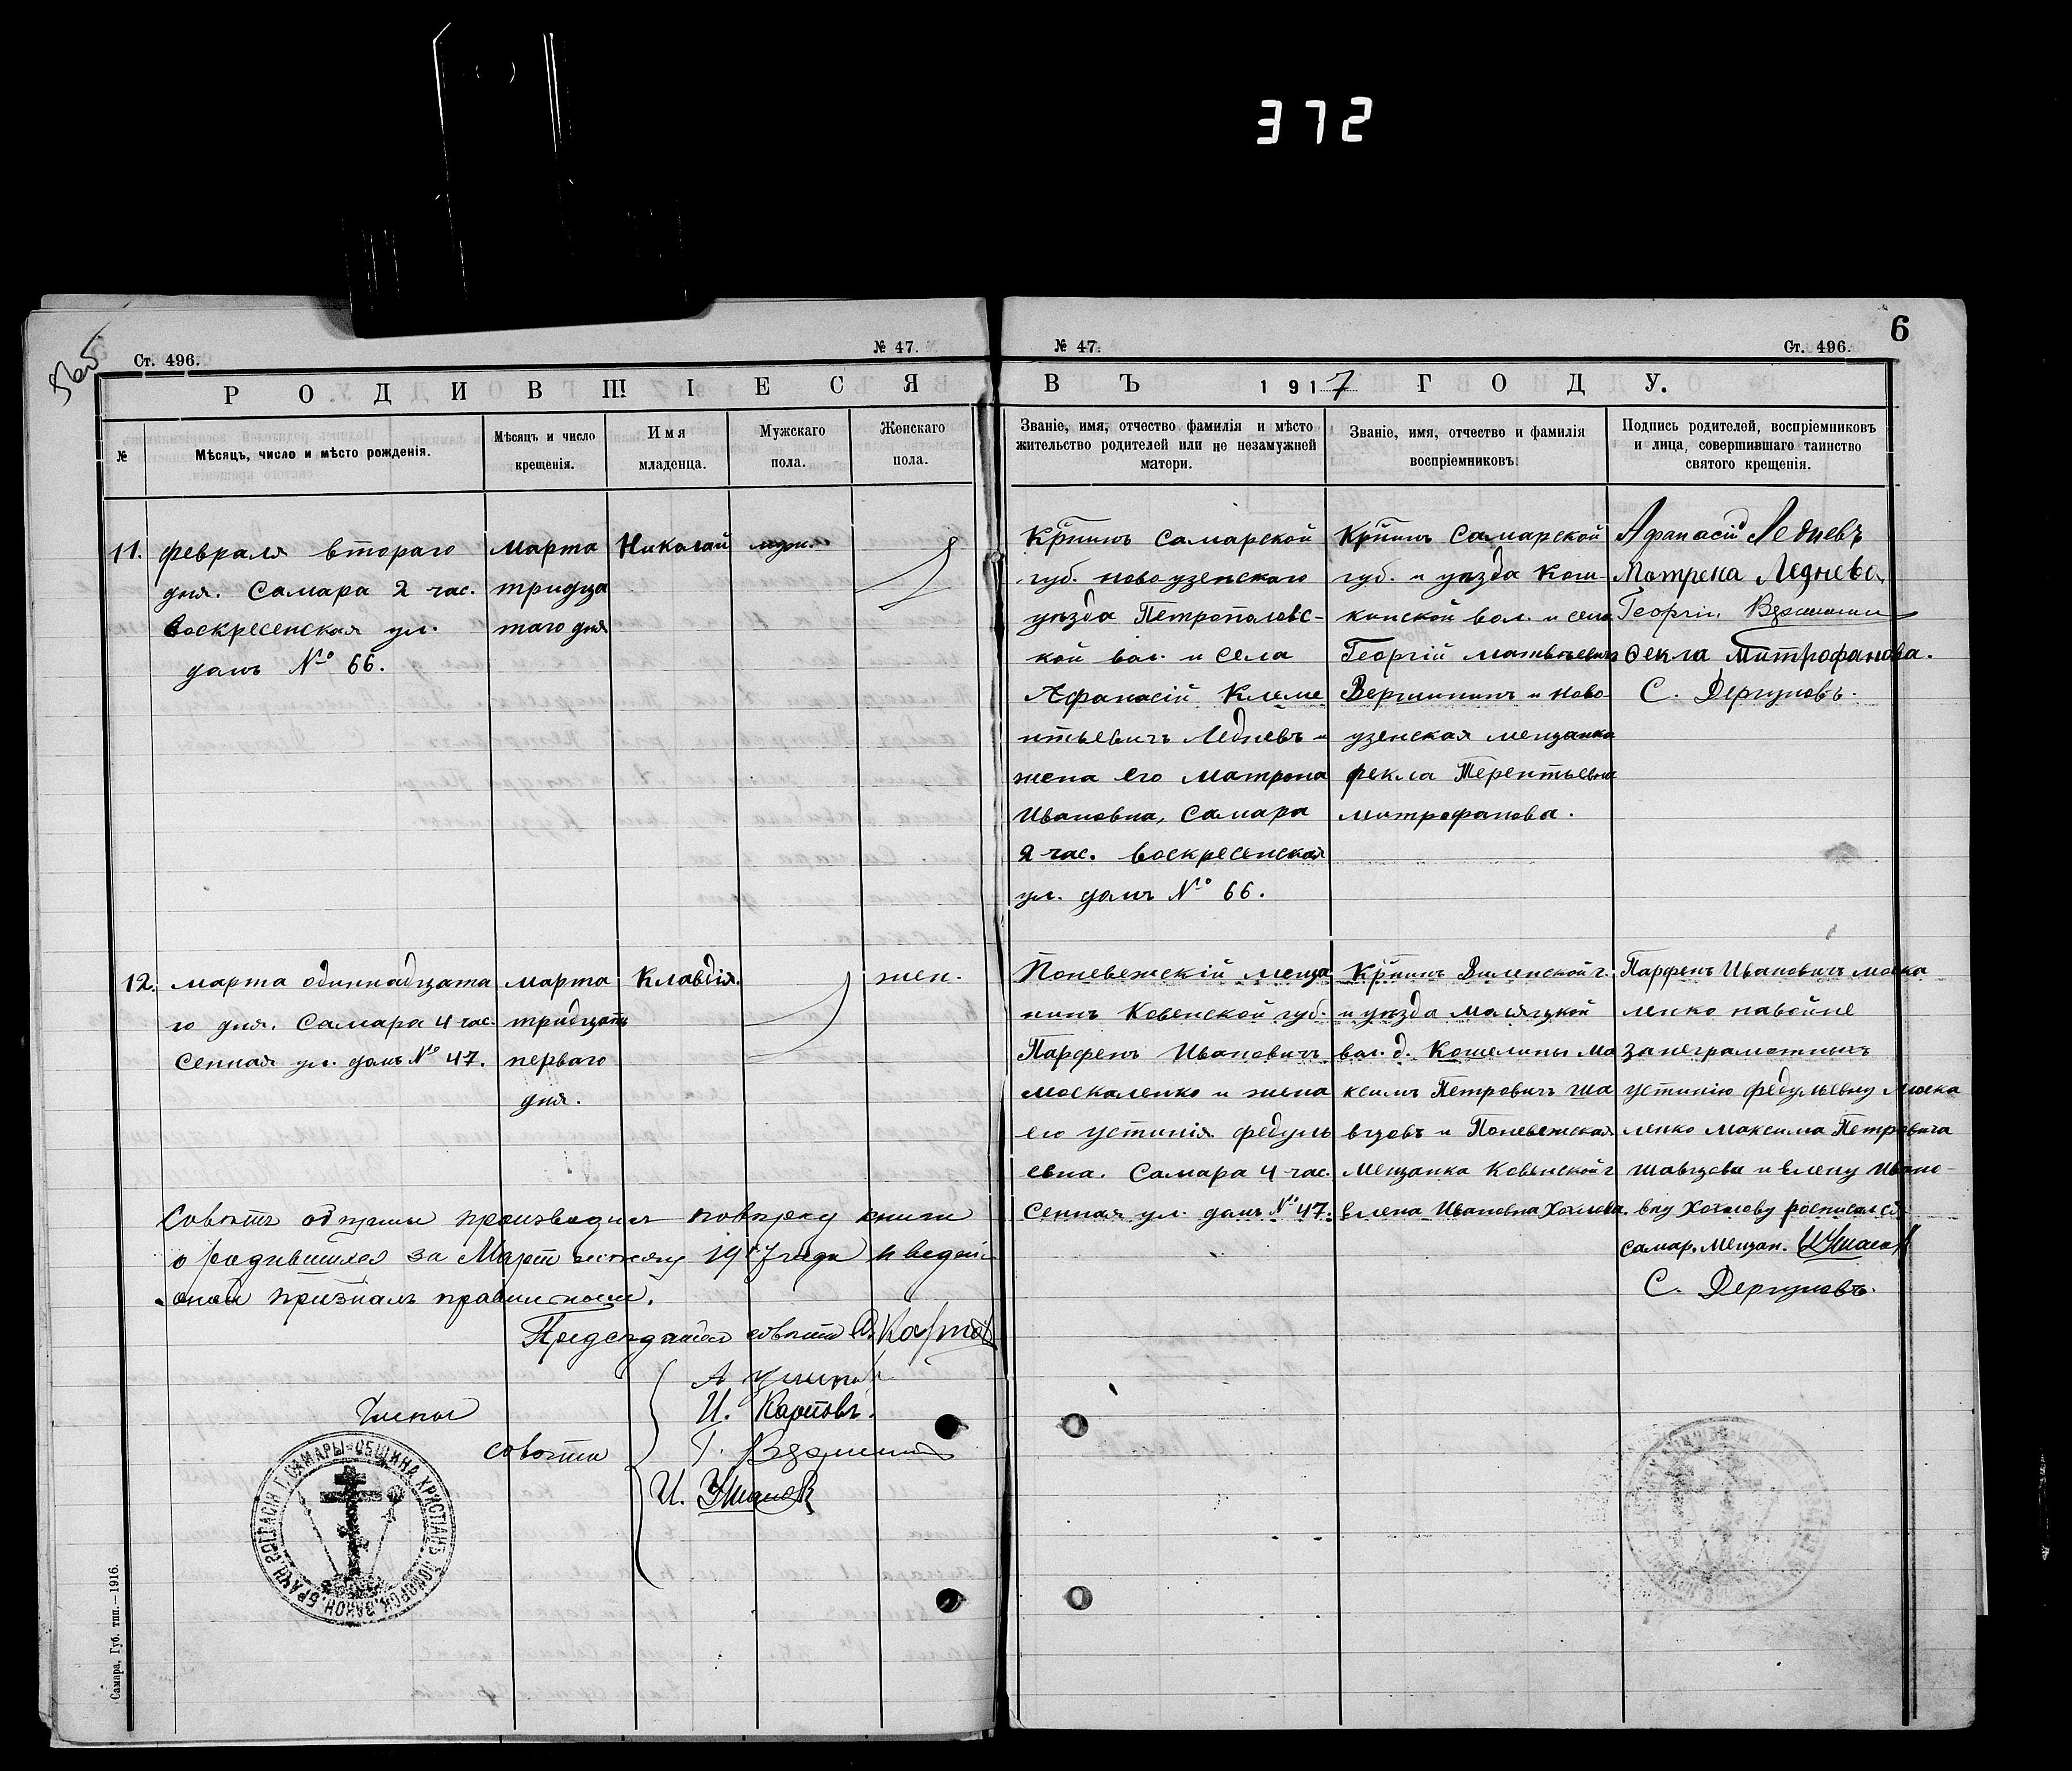 372
6
Ст. 496.
№ 47.
№ 47.
Ст. 496.
РОДИВШІЕСЯ
ВЪ 1917 ГОДУ.
№
Мѣсяцъ, число и мѣсто рожденія.
Мѣсяцъ и число
крещенія.
Имя
младенца.
Мужскаго
пола.
Женскаго
пола.
Званіе, имя, отчество фамилія и мѣсто
жительство родителей или не незамужней
матери.
Званіе, имя, отчество и фамилія
воспріемниковъ.
Подпись родителей, воспріемниковъ
и лица, совершившаго таинство
святого крещенія.
11.
февраля втораго
дня. Самара 2 час.
Воскресенская ул.
домъ № 66.
марта
тридца
таго дня
Николай
муж.
Крпинъ Самарской
губ. новоузенскаго
уѣзда Петропаловс-
кой вол. и села
Афанасій Клеме
нтьевичъ Ледневъ и
жена его Матрона
Ивановна, Самара
2 час. воскресенская
ул. домъ № 66.
Крпинъ Самарской
губ. и уѣзда Кош-
кинской вол. и села
Георгій матвѣевичъ
Вершининъ и ново
узенская мещанка
фекла Терентьевна
митрофанова.
Афанасій Ледневъ
Матрена Леднева
Георгій
Ѳекла Митрофанова.
С. Дергуновъ.
12.
марта одиннадцата
го дня. Самара 4 час.
Сенная ул. домъ № 47.
марта
тридцать
перваго
дня.
Клавдія.
жен.
Поневежскій меща
нинъ Ковенской губ.
Парфенъ Ивановичъ
москаленко и жена
его устинія федуль
евна. Самара 4 час.
Сенная ул. домъ № 47.
Крпинъ Виленской г.
и уѣзда Масяцкой
вол. д. Кошелины Ма
ксимъ Петровичъ ша
вцовъ и Поневежская
Мещанка Ковенской г
елена Ивановна Хохлова.
Парфенъ Ивановичъ моска
ленко навойне
за неграмотныхъ
устинію федульевну Моска
ленко Максима Петровича
шавцова и елену Ивано-
вну Хохлову росписался
самар. Мещан.
С. Дергуновъ.
Совѣтъ общины производилъ повѣрку книги
о родившихся за Мартъ мѣсяцъ 1917 года и веденіе
оной призналъ правильнымъ.
Председатель совѣта
Члены
совѣта
И. Карповъ.
Г.
И. Ушаковъ
СОГЛАСІЯ Г. САМАРЫ ОБЩИНА ХРИСТІАНЪ ПОМОРСК. ЗАКОН. БРАЧН.
Самара, Губ. тип.—1916.